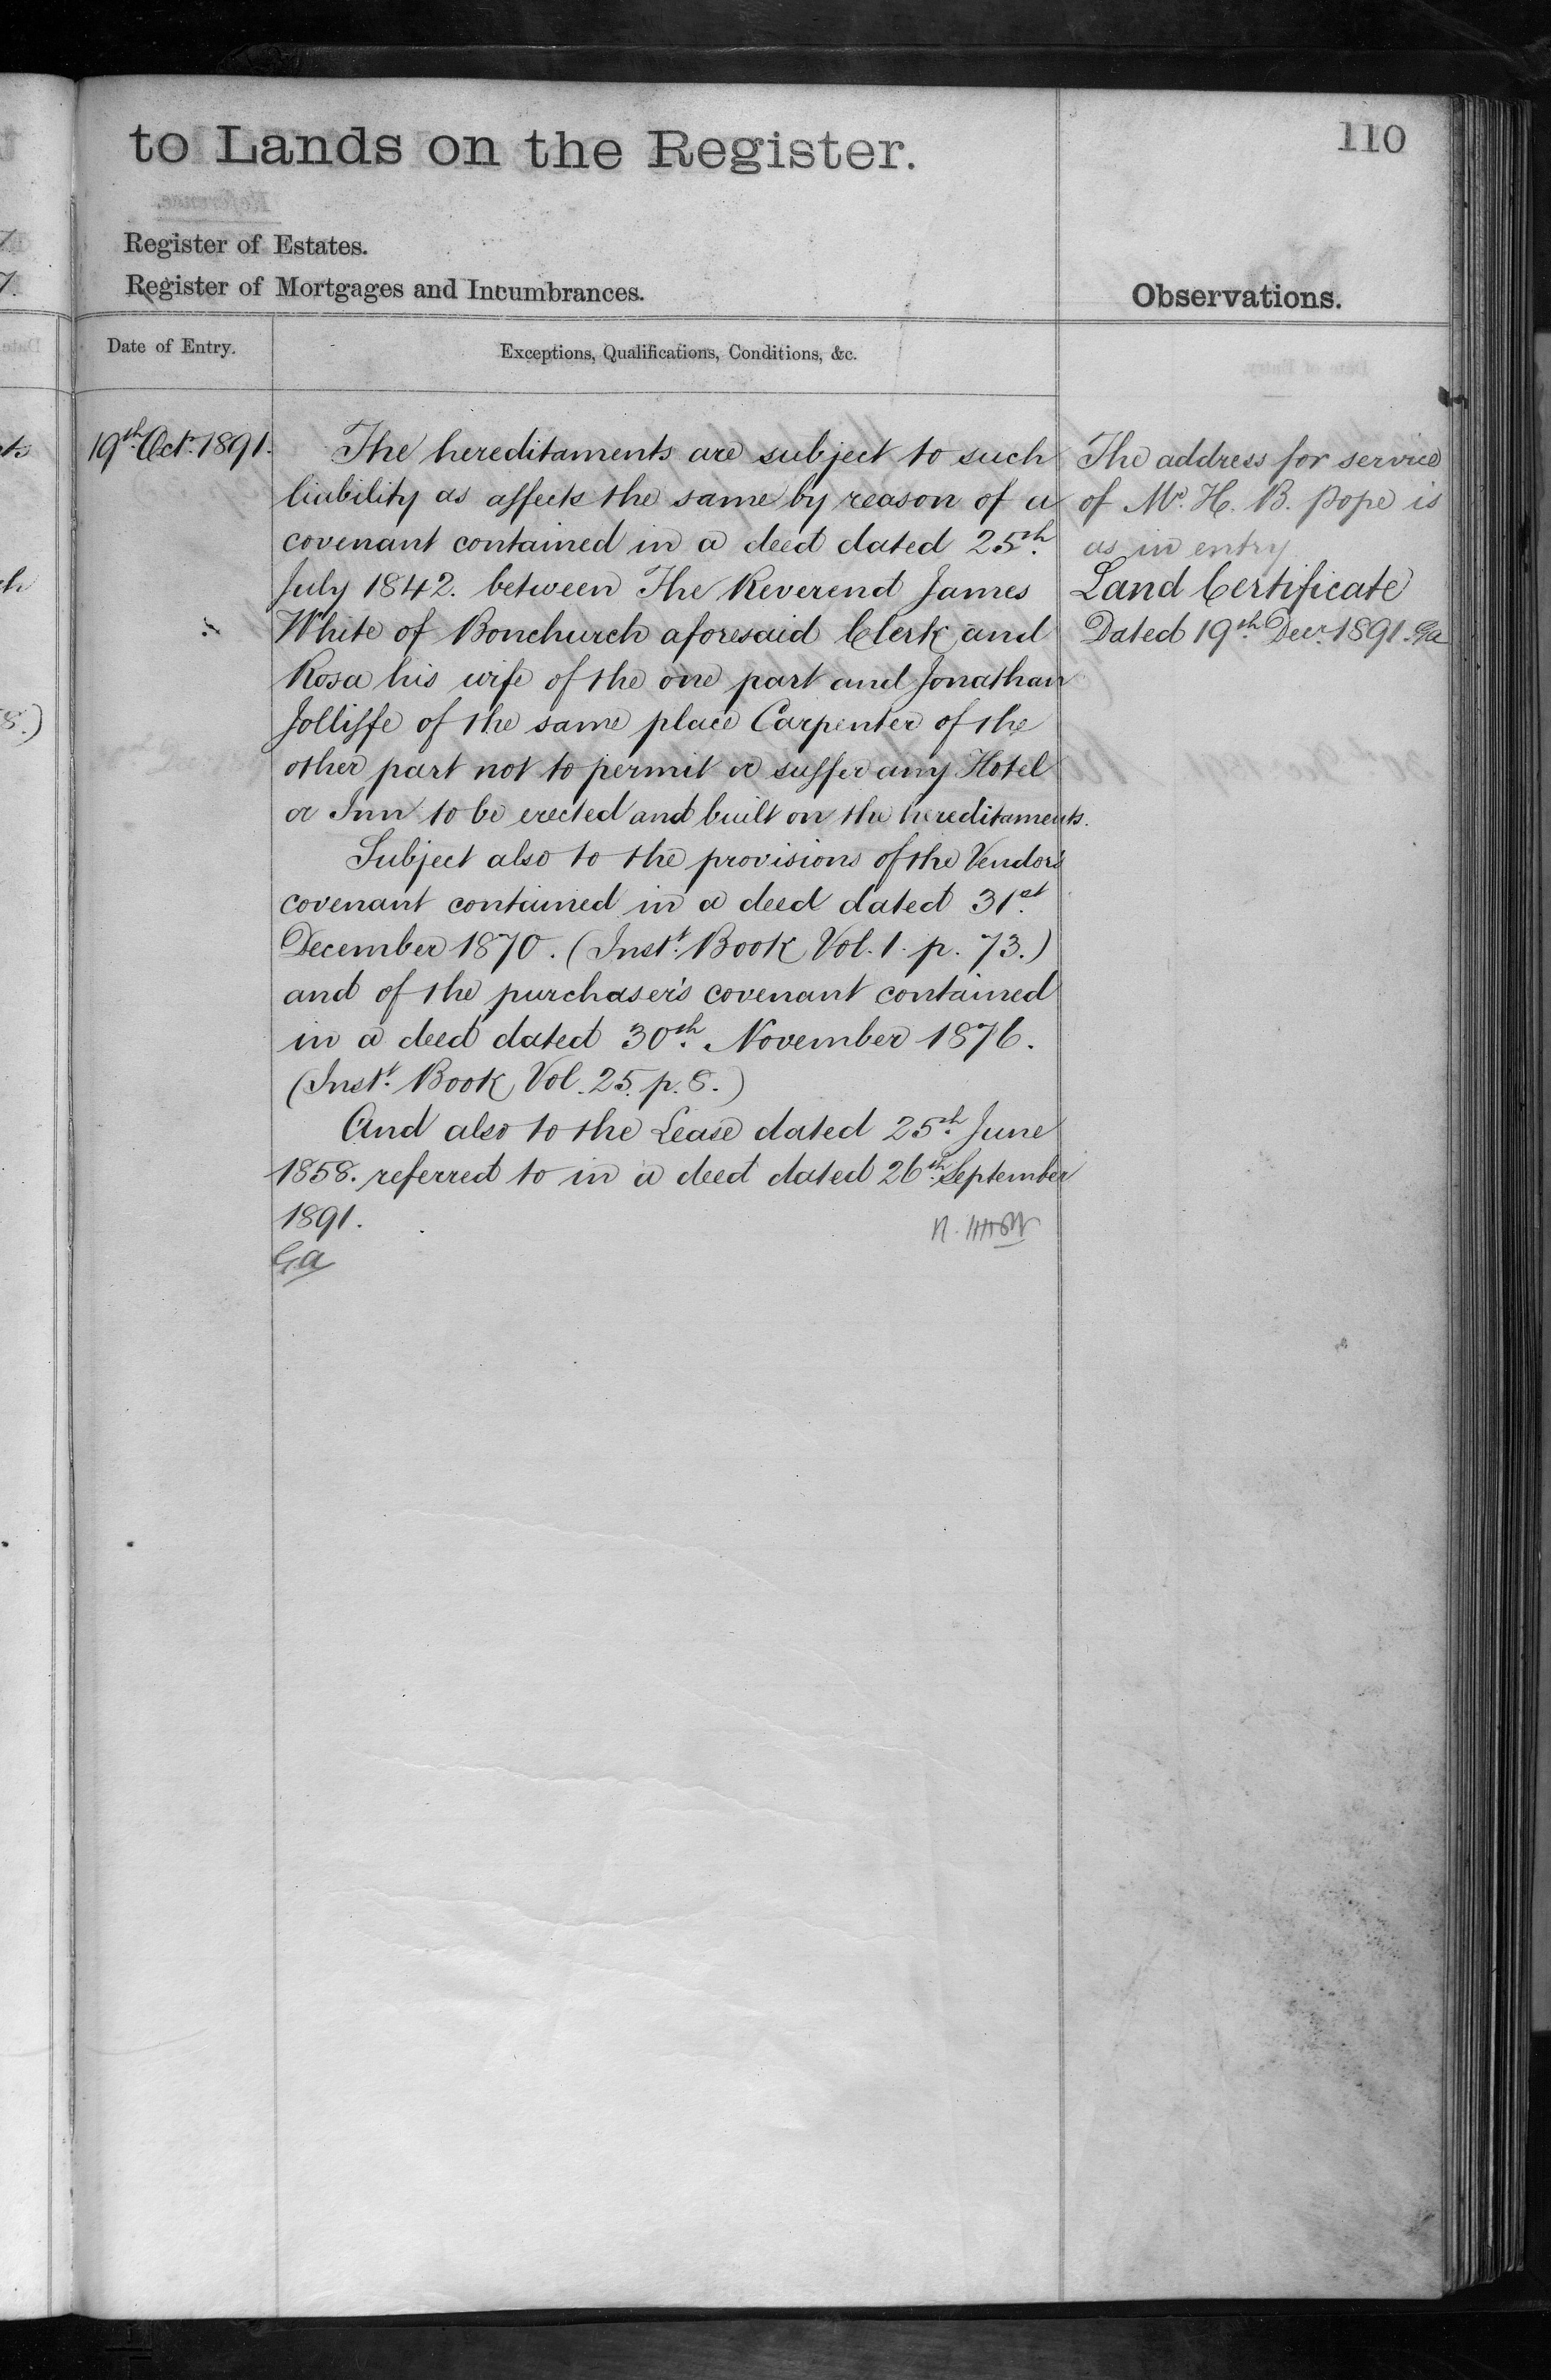 to Lands on the Register.
110
Register of Estates.
Register of Mortgages and Incumbrances.
Observations.
Date of Entry.
Exceptions, Qualifications, Conditions, &c.
19th Octr. 1891.
The hereditaments are subject to such
liability as affects the same by reason of a
covenant contained in a deed dated 25th.
July 1842. between The Reverend James
White of Bonchurch aforesaid Clerk and
Rosa his wife of the one part and Jonathan
Jolliffe of the same place Carpenter of the
other part not to permit or suffer any Hotel
or Inn to be erected and built on the hereditaments.
Subject also to the provisions of the Vendor's
covenant contained in a deed dated 31st.
December 1870. (Inst. Book Vol. 1. p. 73.)
and of the purchaser's covenant contained
in a deed dated 30th. November 1876.
(Inst. Book Vol. 25. p. 8.)
And also to the Lease dated 25th. June
1858. referred to in a deed dated 26th. September
1891.
Ga
The address for service
of Mr. H. B. Pope is
as in entry
Land Certificate
Dated 19th. Decr. 1891. Ga